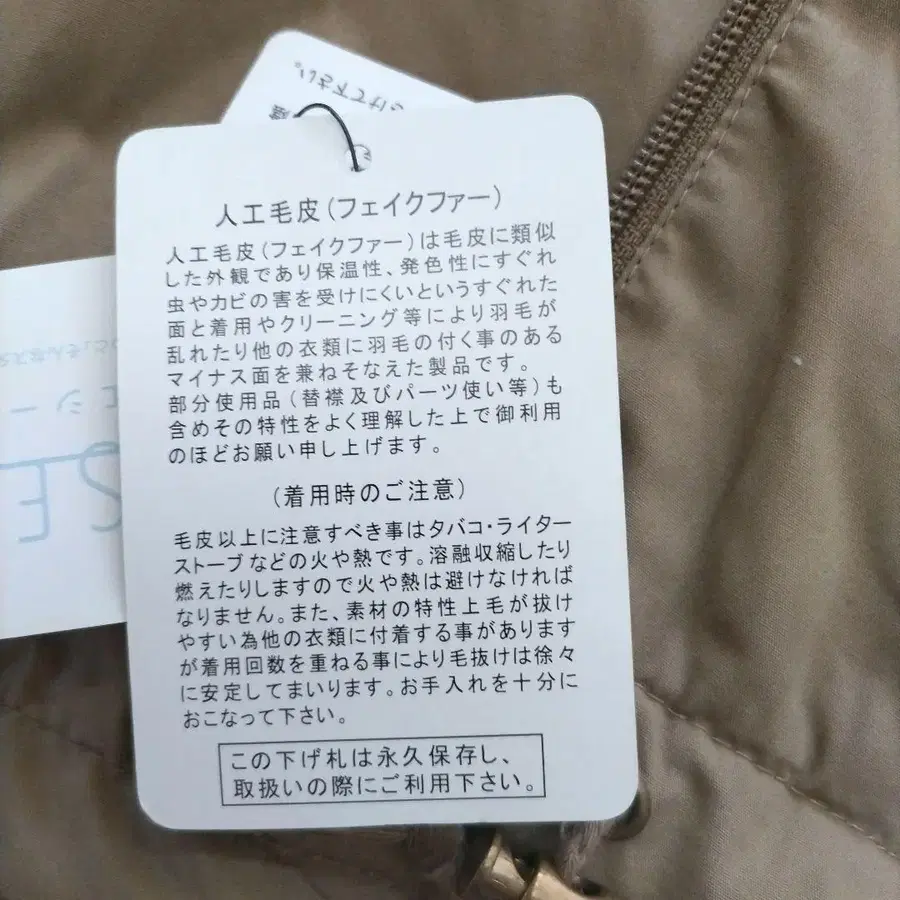 人工毛皮(フェイクファー)
人工毛皮(フェイクファー)は毛皮に類似
した外観であり保温性、発色性にすぐれ
虫やカビの害を受けにくいというすぐれた
面と着用やクリーニング等により羽毛が
乱れたり他の衣類に羽毛の付く事のある
マイナス面を兼ねそなえた製品です。
部分使用品(替襟及びパーツ使い等)も
含めその特性をよく理解した上で御利用
のほどお願い申し上げます。
(着用時のご注意)
毛皮以上に注意すべき事はタバコ・ライター
ストーブなどの火や熱です。溶融収縮したり
燃えたりしますので火や熱は避けなければ
なりません。また、素材の特性上毛が抜け
やすい為他の衣類に付着する事があります
が着用回数を重ねる事により毛抜けは徐々
に安定してまいります。お手入れを十分に
おこなって下さい。
この下げ札は永久保存し、
取扱いの際にご利用下さい。